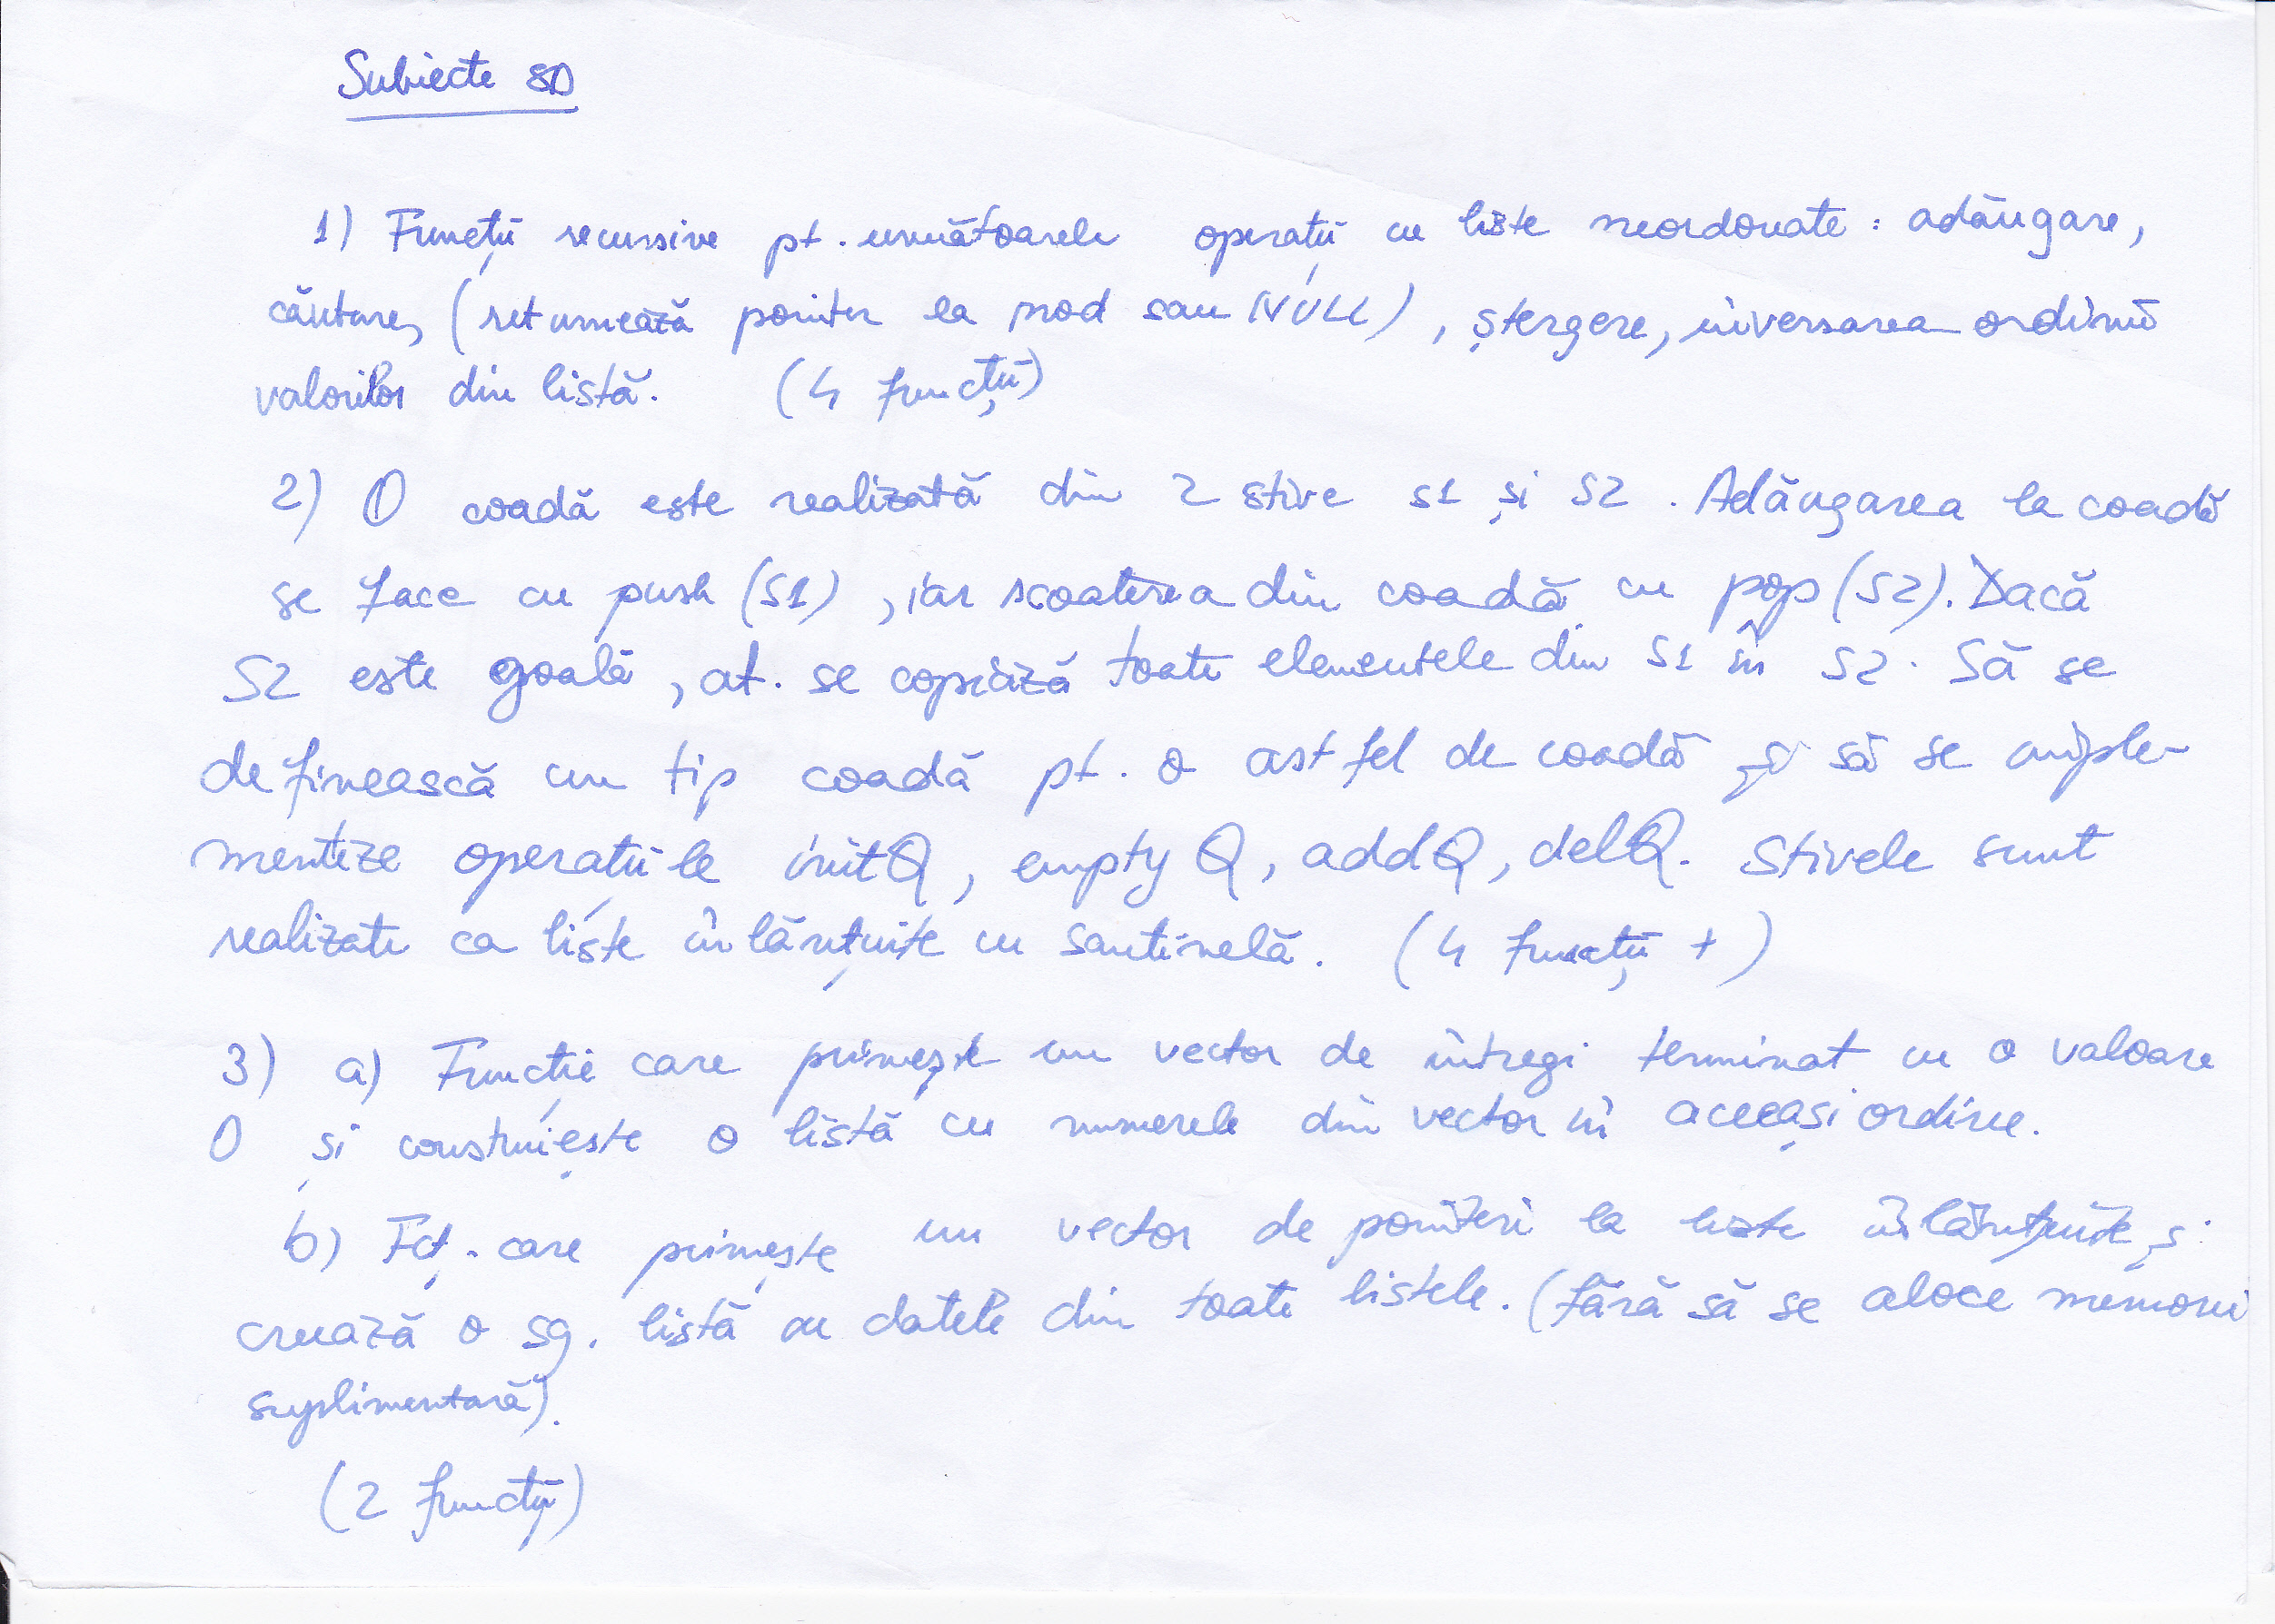 Subiecte SD
1) Funcții recursive pt. următoarele operații cu liste neordonate: adăugare,
căutare, (returnează pointer la nod sau NULL), ștergere, inversarea ordinii
valorilor din listă. (4 funcții)
2) O coadă este realizată din 2 stive S1 și S2. Adăugarea la coadă
se face cu push (S1), iar scoaterea din coadă cu pop (S2). Dacă
S2 este goală, at. se copiază toate elementele din S1 în S2. Să se
definească un tip coadă pt. o astfel de coadă și să se imple-
menteze operațiile initQ, emptyQ, addQ, delQ. Stivele sunt
realizate ca liste înlănțuite cu santinelă. (4 funcții +)
3) a) Funcție care primește un vector de întregi terminat cu o valoare
0 și construiește o listă cu numerele din vector în aceeași ordine.
b) Fcț. care primește un vector de pointeri la liste înlănțuite și
crează o sg. listă cu datele din toate listele. (fără să se aloce memorie
suplimentară).
(2 funcții)